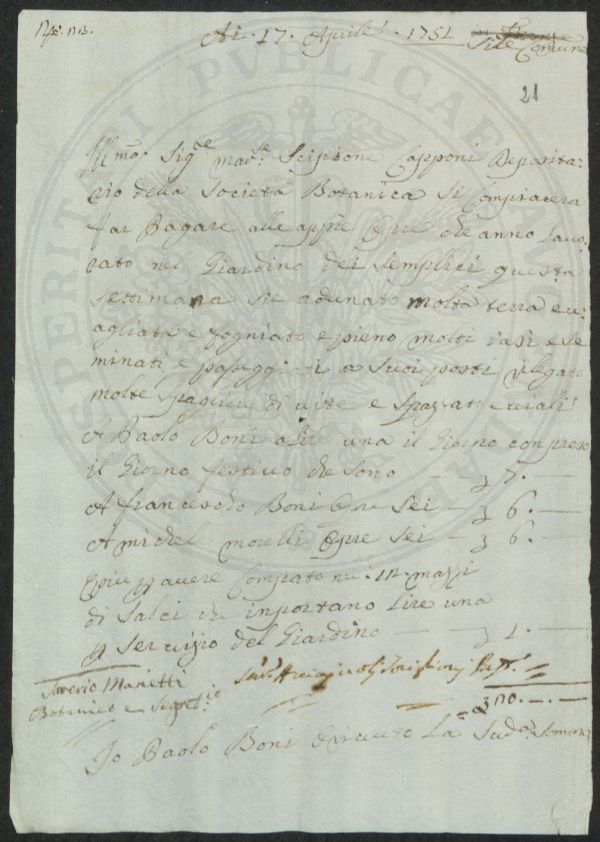 Adi 17. Aprile 1751 Stile Comune
21
Ill:mo Sig:re mar:se Scipione Capponi Deposita:
rio della Società Botanica si Compiacerà
far Pagare alle appie Opre che anno lavo:
rato nel Giardino dei Semplici questa
settimana si è adunato molta terra e v:
agliata e fogniato e pieno molti vasi e se
minati, e passeggiati a suoi posti e legato
molte spagliere di vite e spazzato e viali
A Paolo Boni a lire una il Giorno conpreso
il Giorno festivo che sono — 7. —
A francescho Boni Opre Sei — 6. —
A michele morelli Opre Sei — 6. —
E più p avere Comprato nu:
mazzi
di Salci che inportano Lire una
p servizio del Giardino — 1. —
Saverio Manetti
Botanico e Segret:io
20. — . —
Io Paolo Boni ò riceuto La Sud:a Somma